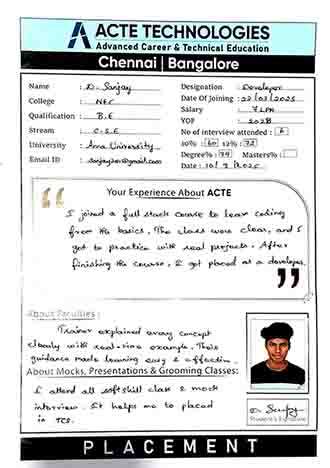 ACTE TECHNOLOGIES
Advanced Career & Technical Education
Chennai | Bangalore
Name : D. Sanjay
Designation : Developer
College : NEC
Date Of Joining : 22/03/2025
Qualification : B.E
Salary : 7 LPA
Stream : C.S.E
YOP :
University : Anna University
No of interview attended :
Email ID :
10% : 60 12% : 72
Degree% : 79 Masters% :
Date :
Your Experience About ACTE
I joined a full stack course to learn coding
from the basics. The class were clear, and I
got to practice with real projects. After
finishing the course, I got placed as a developer.
About Faculties :
Trainer explained every concept
clearly with real-time example. Their
guidance made learning easy & effective.
About Mocks, Presentations & Grooming Classes:
I attend all softskill class & mock
interview. It helps me to placed
in TCS.
Student's Signature
PLACEMENT